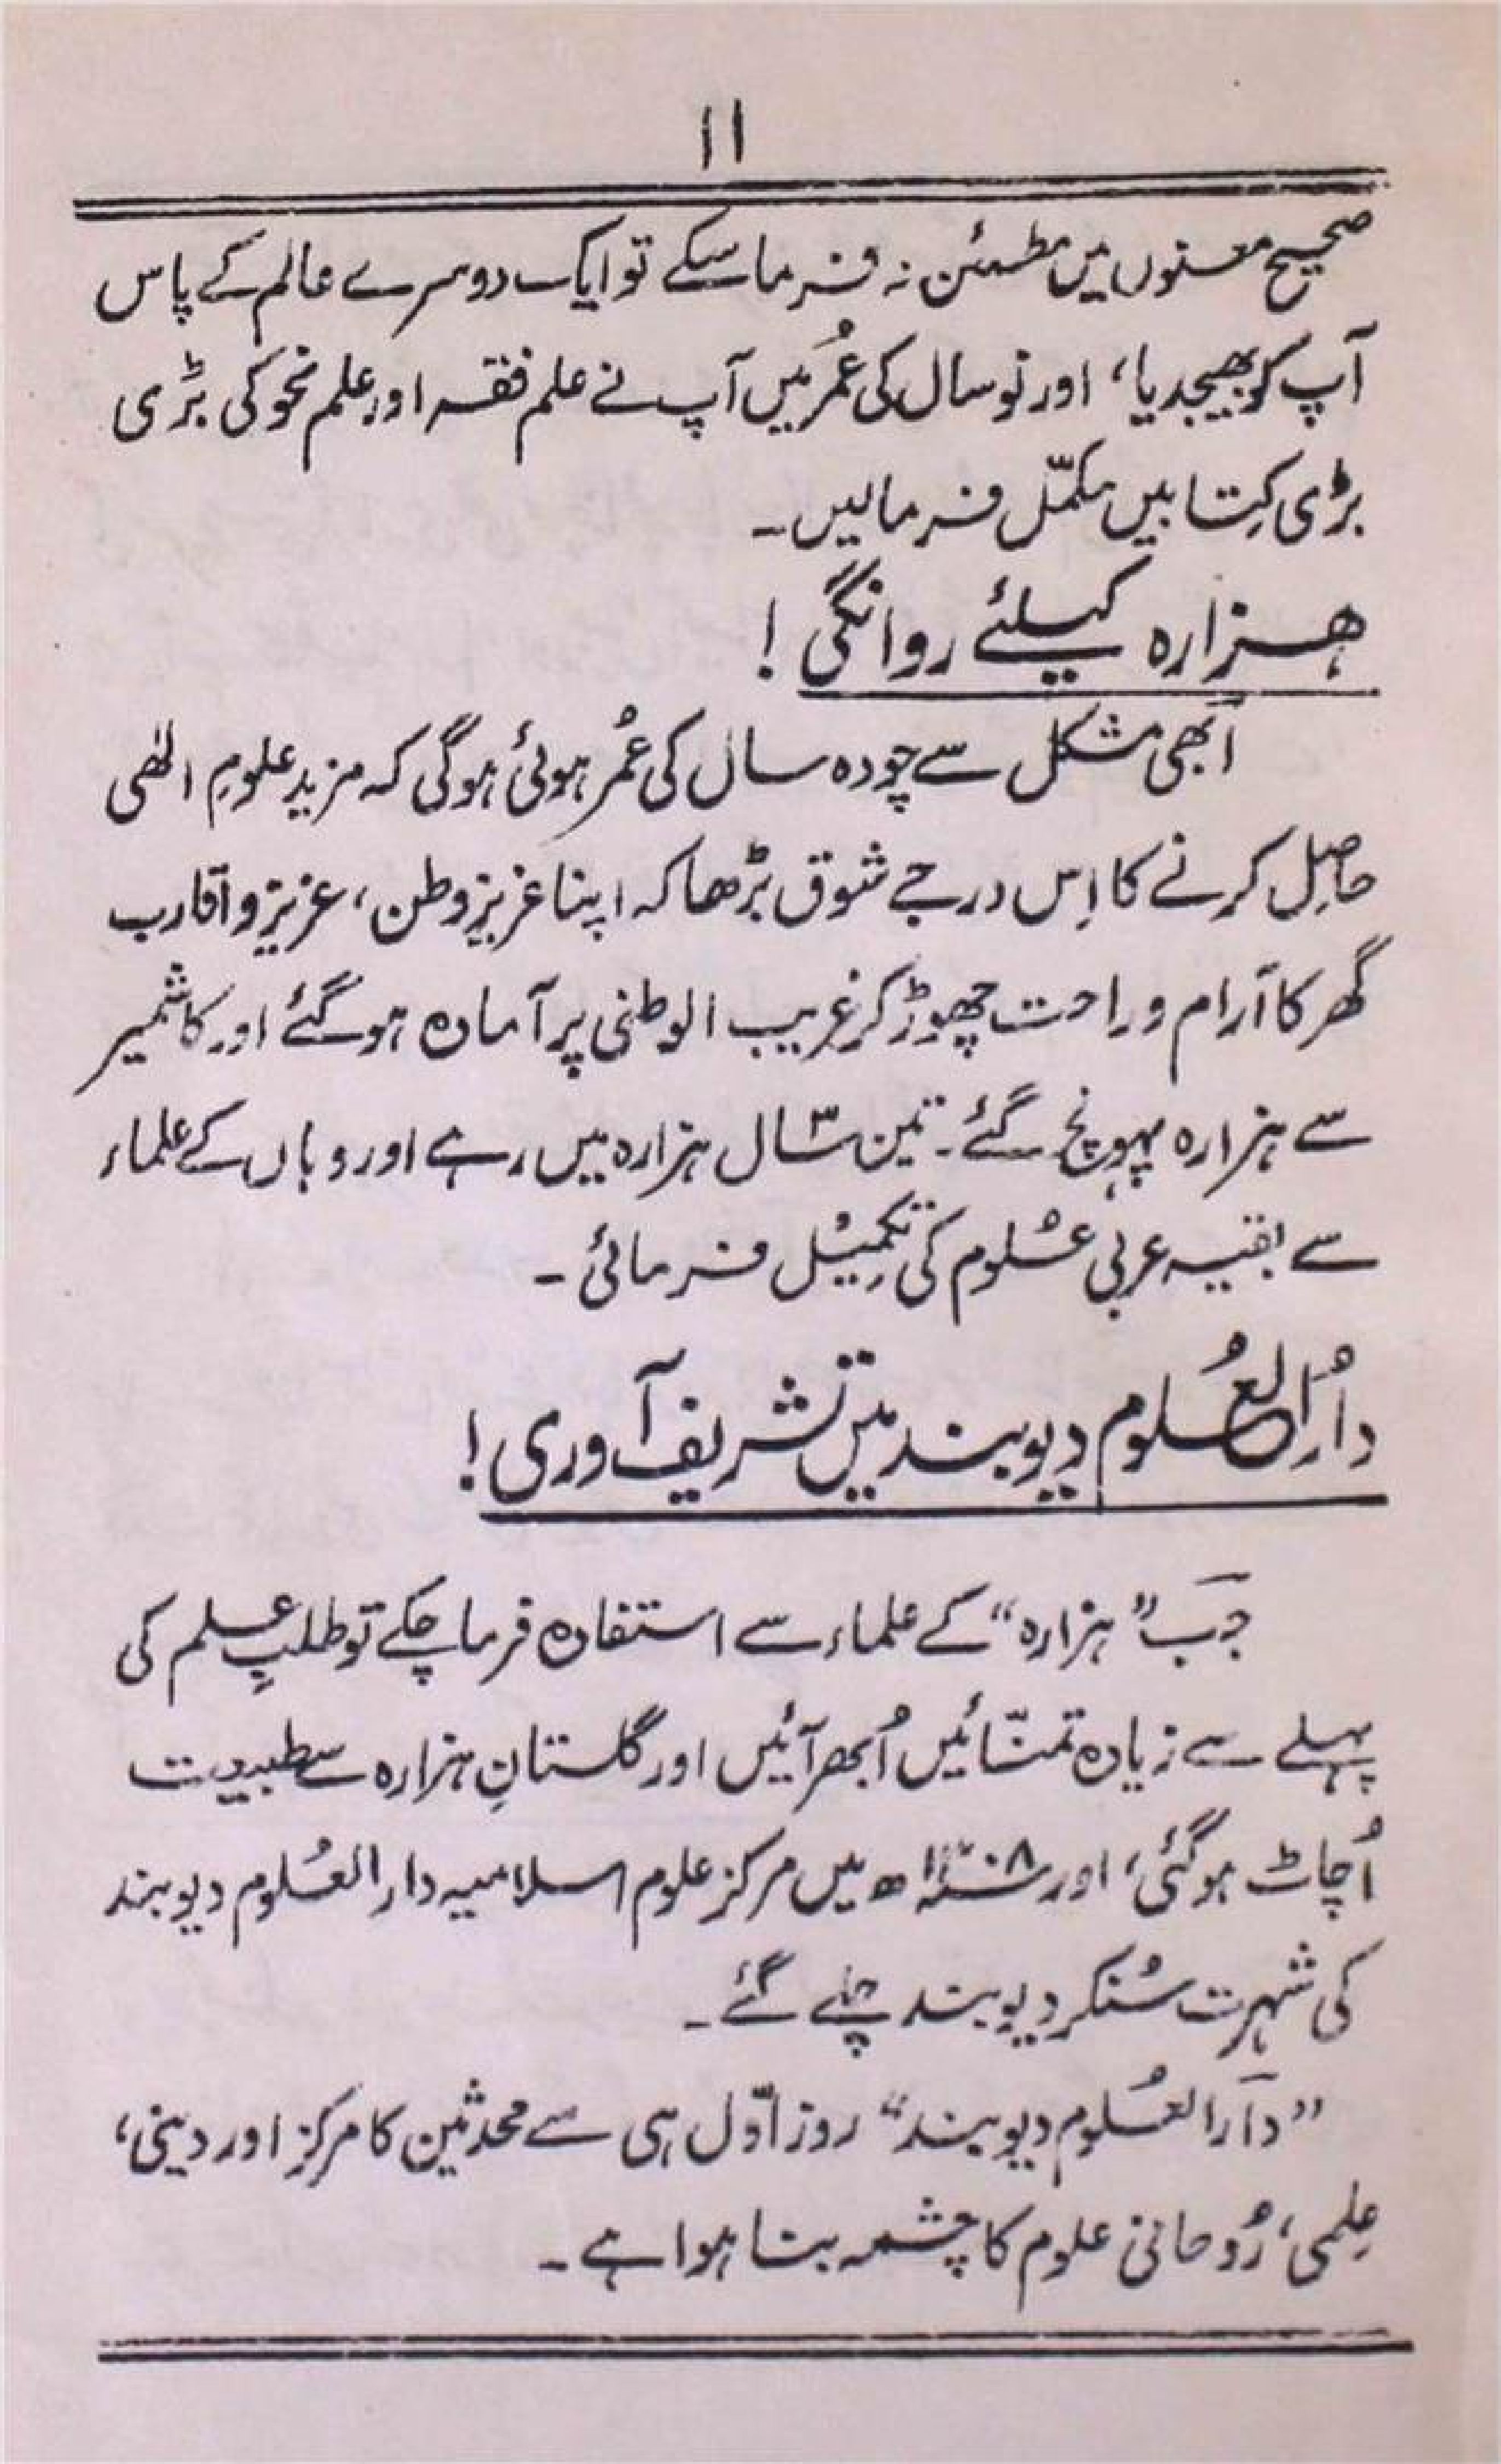 ۱۱
صحیح معنوں میں مطمئن نہ فرما سکے تو ایک دوسرے عالم کے پاس
آپ کو بھیجدیا، اور نو سال کی عُمر میں آپ نے علم فقہ اور علم نحو کی بڑی
بڑی کِتابیں مکمّل فرمالیں۔
ہزارہ کیلئے روانگی !
اَبھی مشکل سے چودہ سال کی عُمر ہوئی ہوگی کہ مزید علومِ الٰھی
حاصِل کرنے کا اِس درجے شوق بڑھا کہ اپنا عزیز وطن، عزیز و اقارب
گھر کا آرام و راحت چھوڑ کر غریب الوطنی پر آمادہ ہوگئے اور کاشمیر
سے ہزارہ پہونچ گئے۔ تین ۳ سال ہزارہ میں رہے اور وہاں کے علماء
سے بقیہ عربی عُلوم کی تکمِیْل فرمائی ۔
دارُالعُلوم دیوبند میں تشریف آوری !
جَب ”ہزارہ“ کے علماء سے استفادہ فرما چکے تو طلبِ علم کی
پہلے سے زیادہ تمنّائیں اُبھر آئیں اور گلستانِ ہزارہ سے طبیعت
اُچاٹ ہوگئی، اور ھ میں مرکز علوم اسلامیہ دار العُلوم دیوبند
کی شہرت سُنکر دیوبند چلے گئے ۔
”دَارالعُلوم دیوبند“ روز اوّل ہی سے محدثین کا مرکز اور دینی،
عِلمی، رُوحانی علوم کا چشمہ بنا ہوا ہے ۔